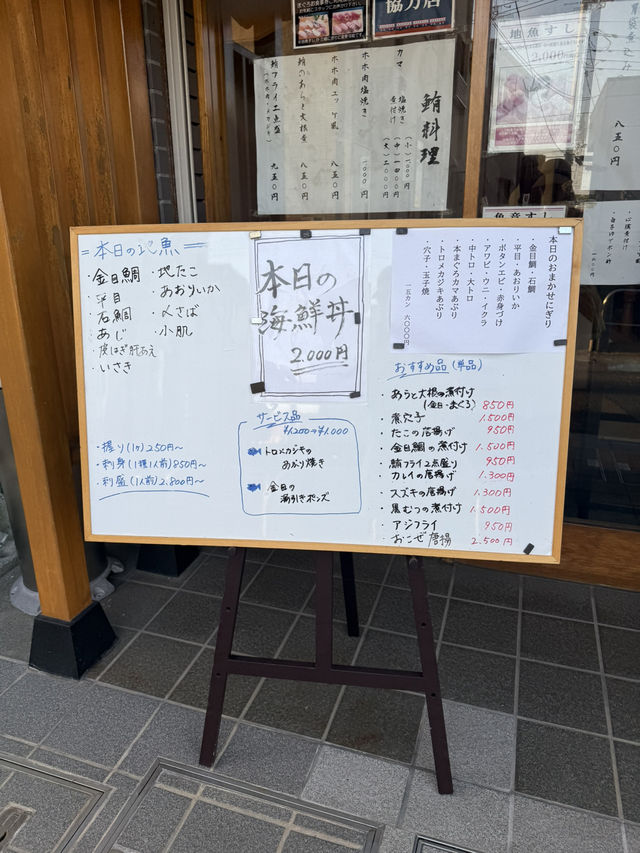 協力店
鮪料理
カマ 塩焼き
煮付け
(小) 1000円
(中) 1400円
(大) 2000円
ホホ肉塩焼き 1000円
ホホ肉ユッケ風 八五〇円
鮪のあらと大根煮 八五〇円
鮪フライ二点盛
(ホホ肉・メカジキ) 九五〇円
地魚すし
2,000円
魚竜すし
=本日の地魚=
・金目鯛
・平目
・石鯛
・あじ
・皮はぎ肝あえ
・いさき
・地たこ
・あおりいか
・〆さば
・小肌
・握り(1ヶ)250円~
・刺身(1種1人前)850円~
・刺盛(1人前)2,800円~
本日の
海鮮丼
2,000円
サービス品
¥1200→¥1,000
トロメカジキの
あぶり焼き
金目の
湯引きポンズ
本日のおまかせにぎり
・金目鯛・石鯛
・平目・あおりいか
・ボタンエビ・赤身づけ
・アワビ・ウニ・イクラ
・中トロ・大トロ
・本まぐろカマあぶり
・トロメカジキあぶり
・穴子・玉子焼
一五カン 六〇〇〇円
おすすめ品(単品)
・あらと大根の煮付け
(金目・まぐろ) 850円
・煮穴子 1,500円
・たこの唐揚げ 950円
・金目鯛の煮付け 1,500円
・鮪フライ2点盛り 950円
・カレイの唐揚げ 1,300円
・スズキの唐揚げ 1,300円
・黒むつの煮付け 1,500円
・アジフライ 950円
・おこぜ唐揚 2,500円